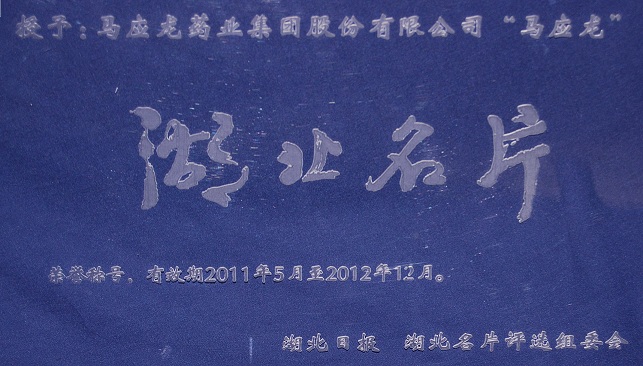 授予：马应龙药业集团股份有限公司“马应龙”
湖北名片
荣誉称号，有效期2011年5月至2012年12月。
湖北日报 湖北名片评选组委会